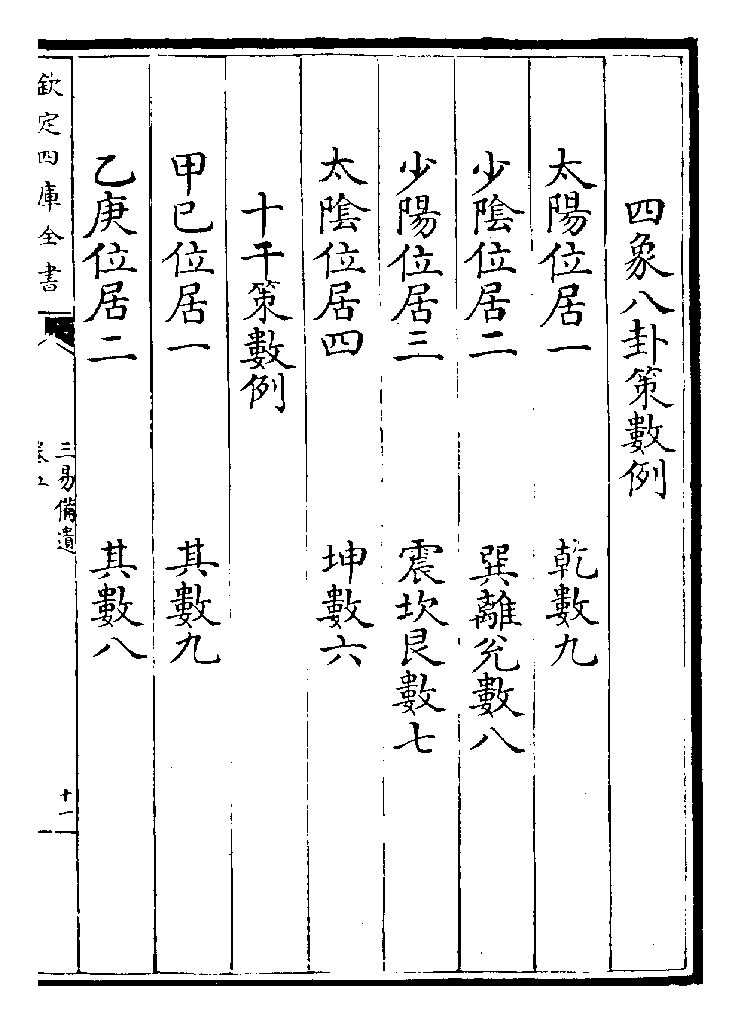 四象八卦策數例
太陽位居一 乾數九
少陰位居二 巽離兌數八
少陽位居三 震坎艮數七
太陰位居四 坤數六
十干策數例
甲己位居一 其數九
乙庚位居二 其數八
欽定四庫全書
三易備遺
十一